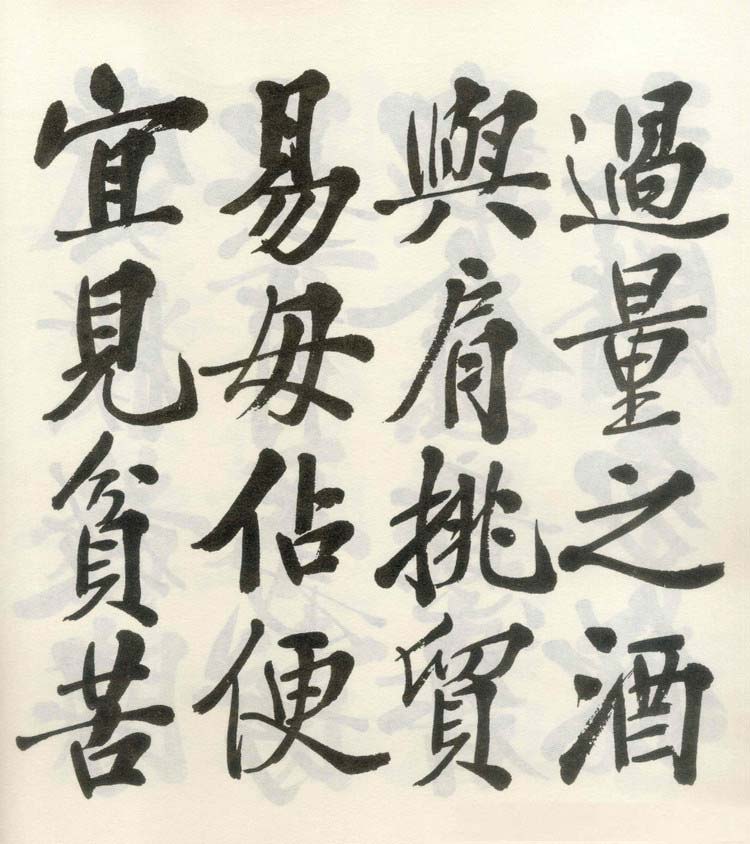 過量之酒
與肩挑貿
易毋佔便
宜見貧苦